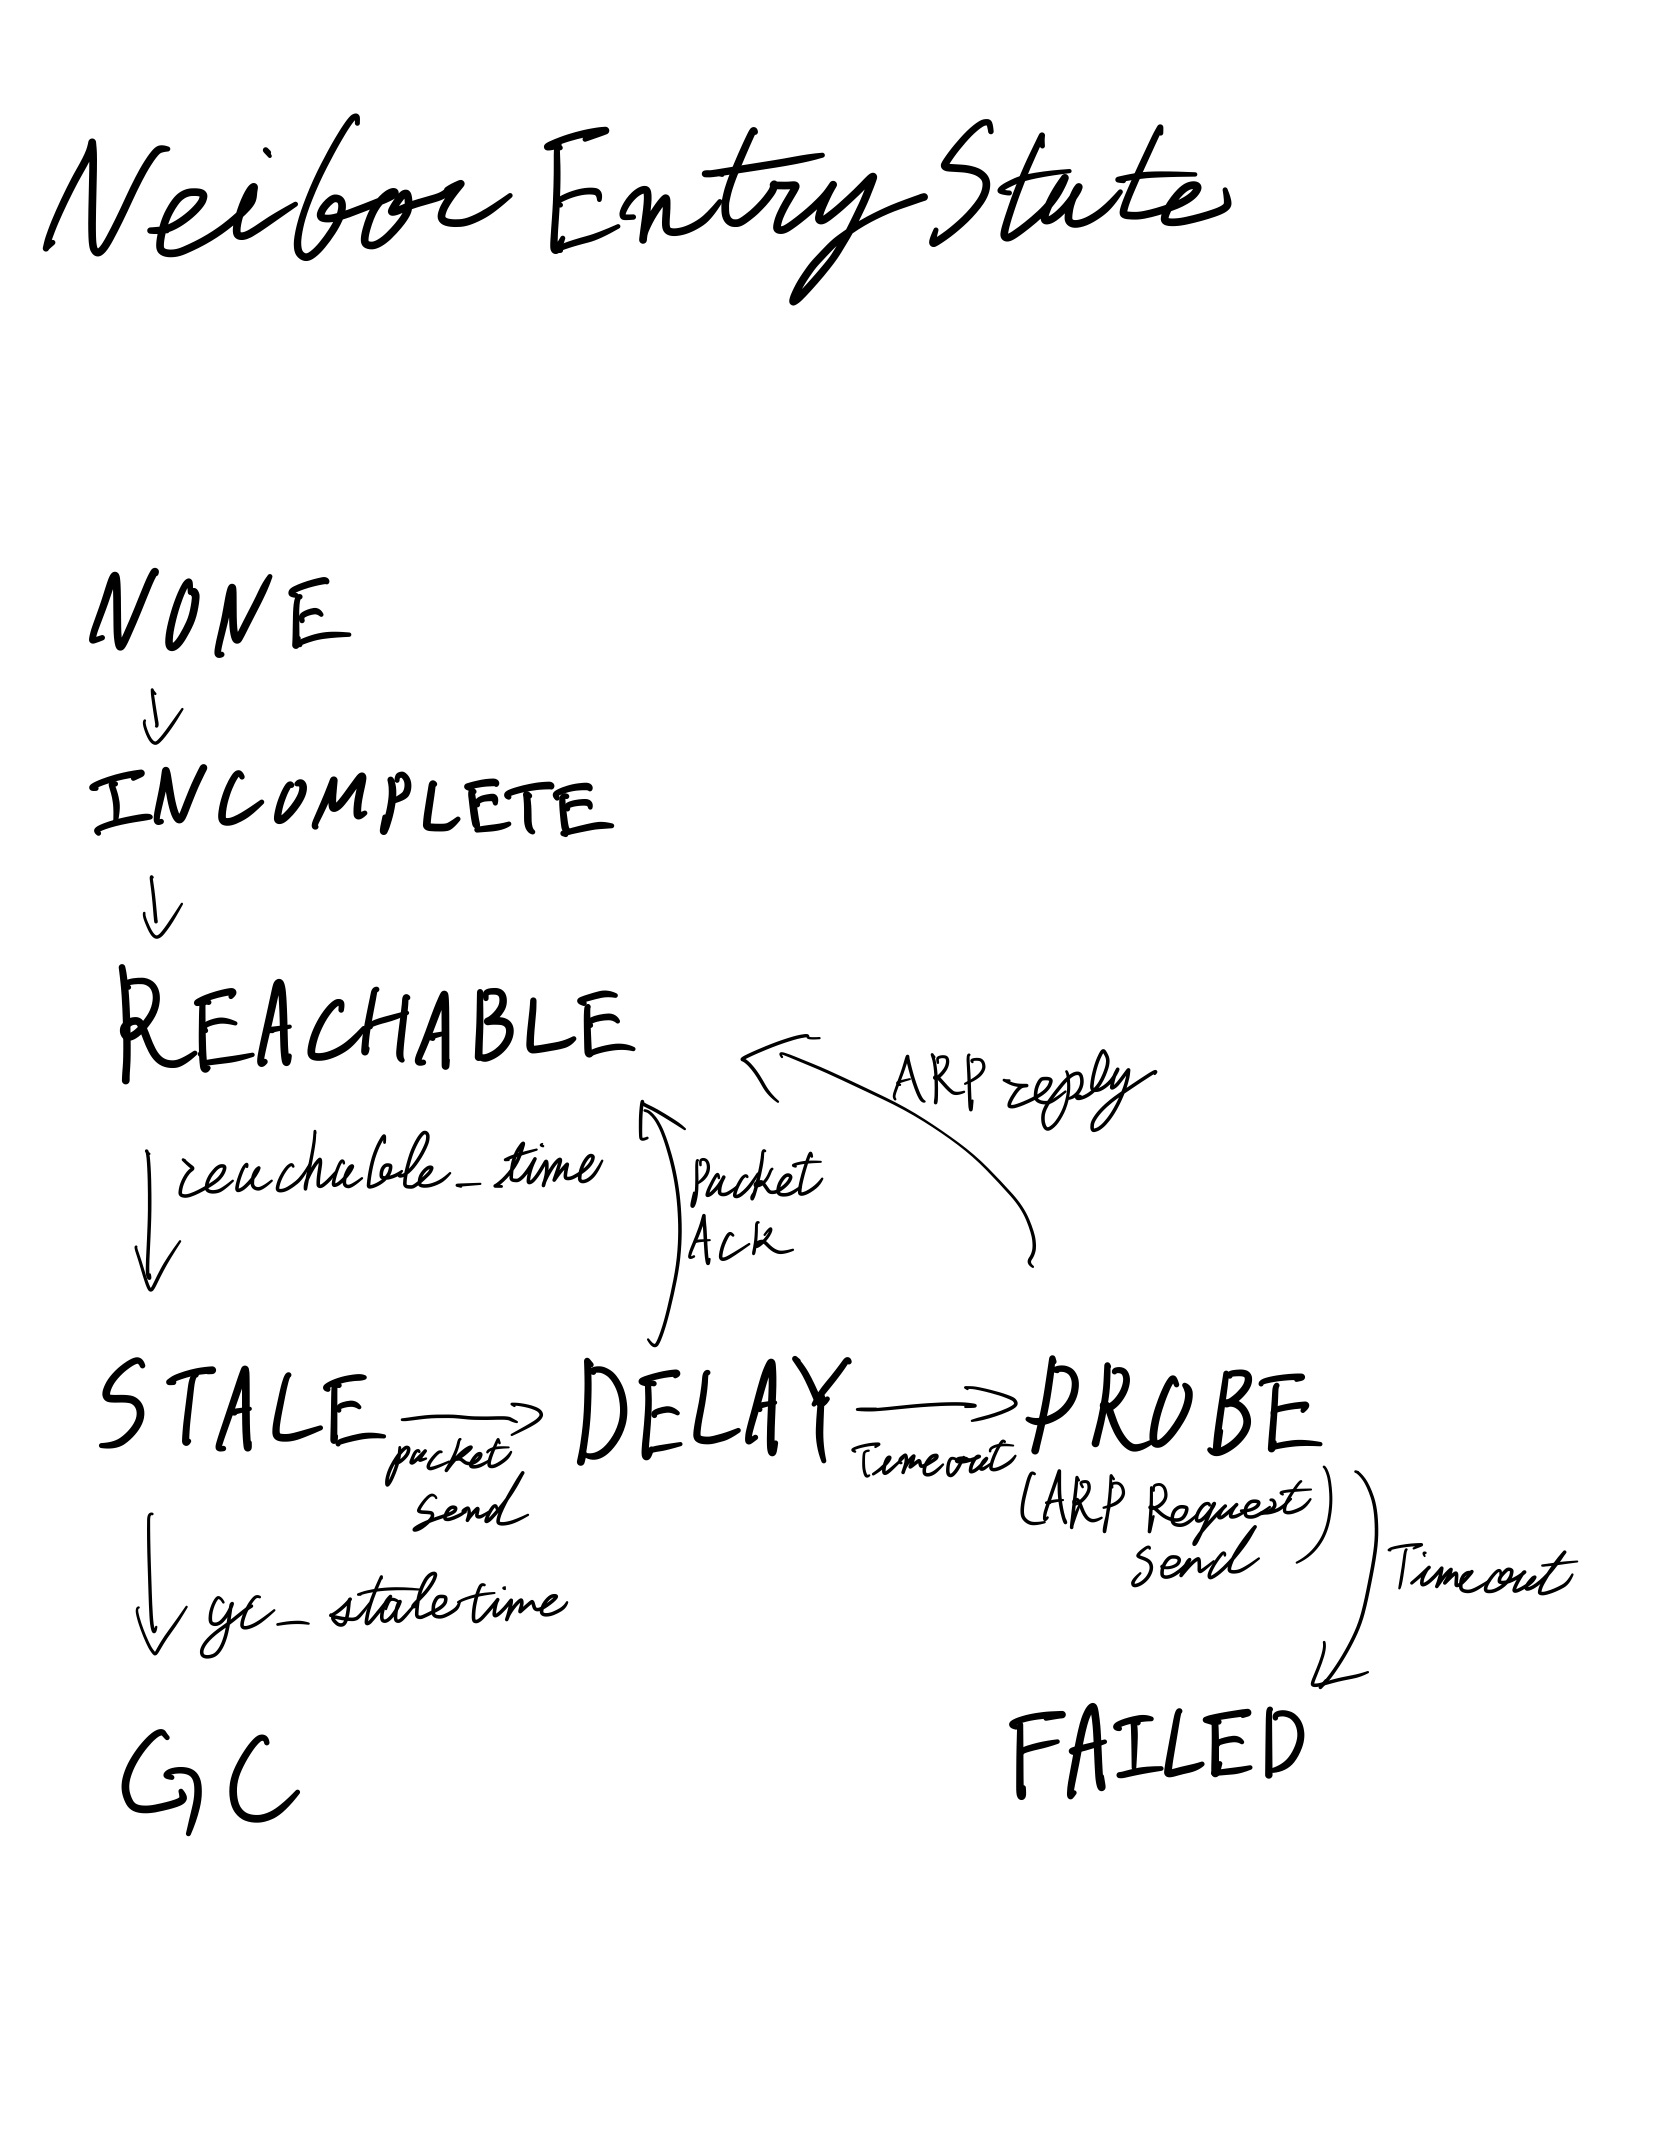 Neibor Entry State
NONE
INCOMPLETE
REACHABLE
ARP reply
reachable_time
Packet
Ack
STALE
DELAY
PROBE
packet
send
Timeout
(ARP Request
send)
Timeout
gc_staletime
GC
FAILED